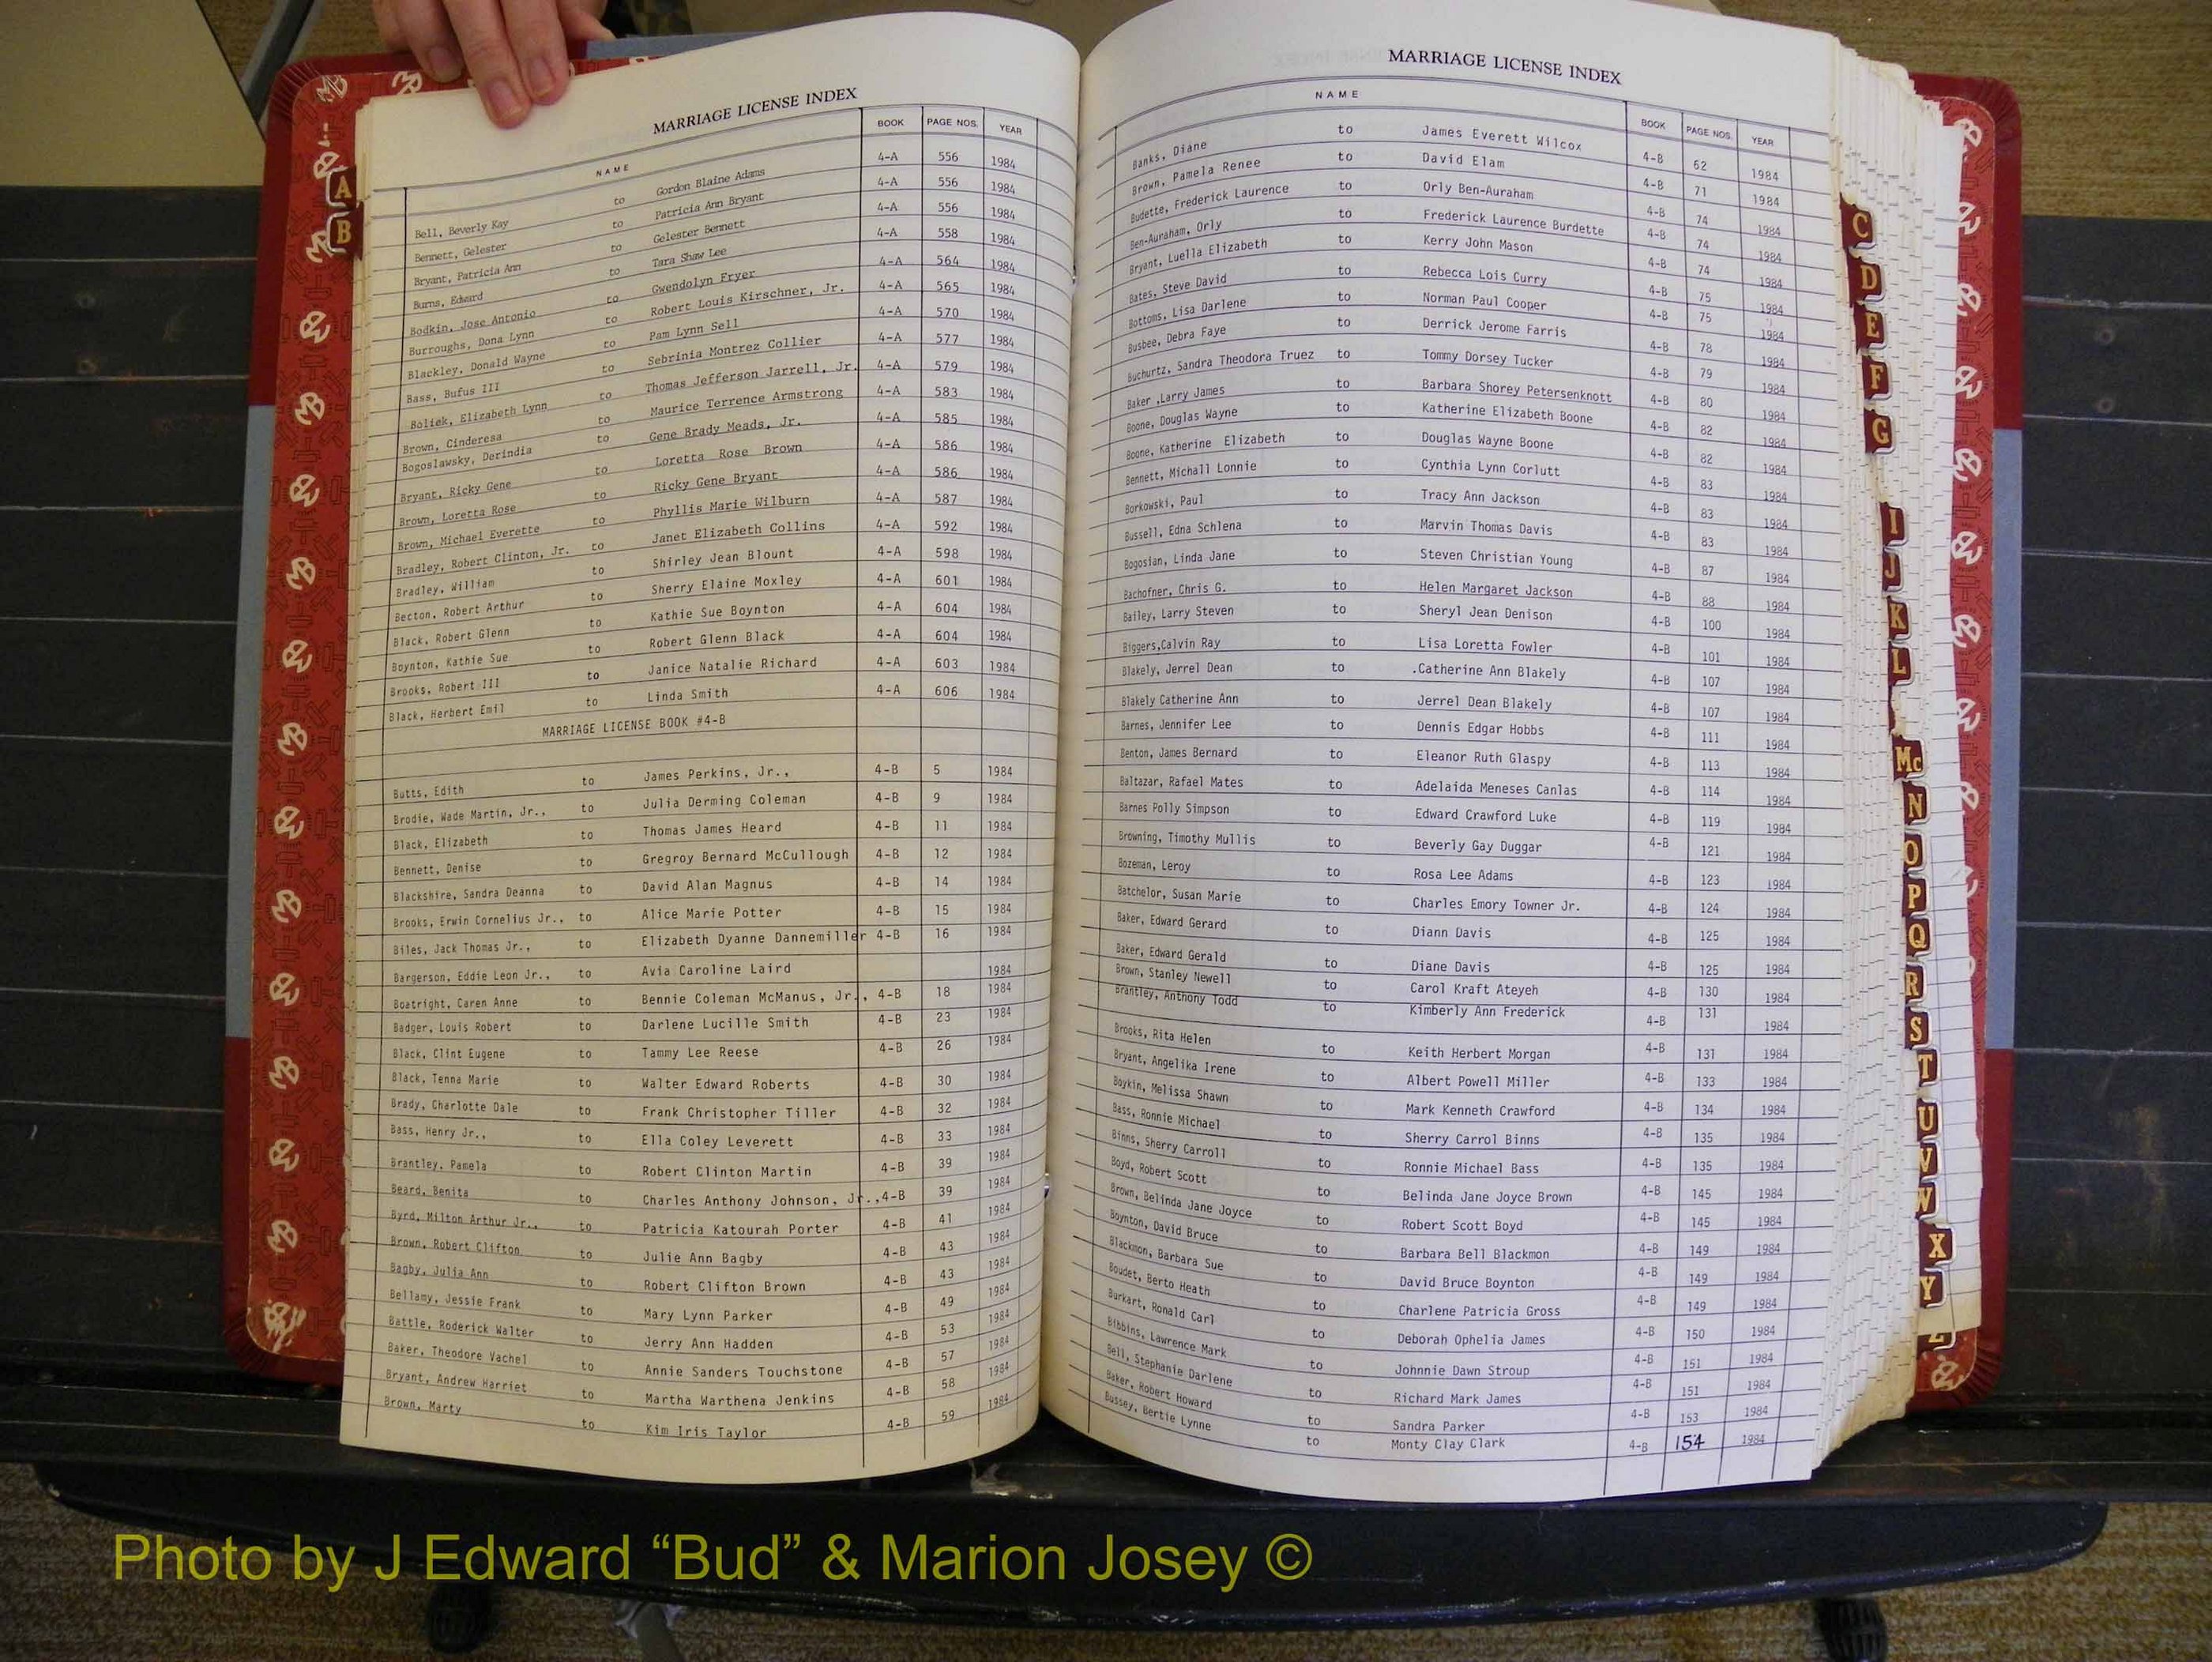 MARRIAGE LICENSE INDEX
NAME BOOK PAGE NOS. YEAR
Bell, Beverly Kay to Gordon Blaine Adams 4-A 556 1984
Bennett, Gelester to Patricia Ann Bryant 4-A 556 1984
Bryant, Patricia Ann to Gelester Bennett 4-A 556 1984
Burns, Edward to Tara Shaw Lee 4-A 558 1984
Bodkin, Jose Antonio to Gwendolyn Fryer 4-A 564 1984
Burroughs, Dona Lynn to Robert Louis Kirschner, Jr. 4-A 565 1984
Blackley, Donald Wayne to Pam Lynn Sell 4-A 570 1984
Bass, Bufus III to Sebrinia Montrez Collier 4-A 577 1984
Boliek, Elizabeth Lynn to Thomas Jefferson Jarrell, Jr. 4-A 579 1984
Brown, Cinderesa to Maurice Terrence Armstrong 4-A 583 1984
Bogoslawsky, Derindia to Gene Brady Meads, Jr. 4-A 585 1984
Bryant, Ricky Gene to Loretta Rose Brown 4-A 586 1984
Brown, Loretta Rose to Ricky Gene Bryant 4-A 586 1984
Brown, Michael Everette to Phyllis Marie Wilburn 4-A 587 1984
Bradley, Robert Clinton, Jr. to Janet Elizabeth Collins 4-A 592 1984
Bradley, William to Shirley Jean Blount 4-A 598 1984
Becton, Robert Arthur to Sherry Elaine Moxley 4-A 601 1984
Black, Robert Glenn to Kathie Sue Boynton 4-A 604 1984
Boynton, Kathie Sue to Robert Glenn Black 4-A 604 1984
Brooks, Robert III to Janice Natalie Richard 4-A 603 1984
Black, Herbert Emil to Linda Smith 4-A 606 1984
MARRIAGE LICENSE BOOK #4-B
Butts, Edith to James Perkins, Jr., 4-B 5 1984
Brodie, Wade Martin, Jr., to Julia Derming Coleman 4-B 9 1984
Black, Elizabeth to Thomas James Heard 4-B 11 1984
Bennett, Denise to Gregroy Bernard McCullough 4-B 12 1984
Blackshire, Sandra Deanna to David Alan Magnus 4-B 14 1984
Brooks, Erwin Cornelius Jr., to Alice Marie Potter 4-B 15 1984
Biles, Jack Thomas Jr., to Elizabeth Dyanne Dannemiller 4-B 16 1984
Bargerson, Eddie Leon Jr., to Avia Caroline Laird 1984
Boatright, Caren Anne to Bennie Coleman McManus, Jr., 4-B 18 1984
Badger, Louis Robert to Darlene Lucille Smith 4-B 23 1984
Black, Clint Eugene to Tammy Lee Reese 4-B 26 1984
Black, Tenna Marie to Walter Edward Roberts 4-B 30 1984
Brady, Charlotte Dale to Frank Christopher Tiller 4-B 32 1984
Bass, Henry Jr., to Ella Coley Leverett 4-B 33 1984
Brantley, Pamela to Robert Clinton Martin 4-B 39 1984
Beard, Benita to Charles Anthony Johnson, Jr., 4-B 39 1984
Byrd, Milton Arthur Jr., to Patricia Katourah Porter 4-B 41 1984
Brown, Robert Clifton to Julie Ann Bagby 4-B 43 1984
Bagby, Julia Ann to Robert Clifton Brown 4-B 43 1984
Bellamy, Jessie Frank to Mary Lynn Parker 4-B 49 1984
Battle, Roderick Walter to Jerry Ann Hadden 4-B 53 1984
Baker, Theodore Vachel to Annie Sanders Touchstone 4-B 57 1984
Bryant, Andrew Harriet to Martha Warthena Jenkins 4-B 58 1984
Brown, Marty to Kim Iris Taylor 4-B 59 1984
MARRIAGE LICENSE INDEX
NAME BOOK PAGE NOS. YEAR
Banks, Diane to James Everett Wilcox 4-B 62 1984
Brown, Pamela Renee to David Elam 4-B 71 1984
Budette, Frederick Laurence to Orly Ben-Auraham 4-B 74 1984
Ben-Auraham, Orly to Frederick Laurence Burdette 4-B 74 1984
Bryant, Luella Elizabeth to Kerry John Mason 4-B 74 1984
Bates, Steve David to Rebecca Lois Curry 4-B 75 1984
Bottoms, Lisa Darlene to Norman Paul Cooper 4-B 75 1984
Busbee, Debra Faye to Derrick Jerome Farris 4-B 78 1984
Buchurtz, Sandra Theodora Truez to Tommy Dorsey Tucker 4-B 79 1984
Baker ,Larry James to Barbara Shorey Petersenknott 4-B 80 1984
Boone, Douglas Wayne to Katherine Elizabeth Boone 4-B 82 1984
Boone, Katherine Elizabeth to Douglas Wayne Boone 4-B 82 1984
Bennett, Michall Lonnie to Cynthia Lynn Corlutt 4-B 83 1984
Borkowski, Paul to Tracy Ann Jackson 4-B 83 1984
Bussell, Edna Schlena to Marvin Thomas Davis 4-B 83 1984
Bogosian, Linda Jane to Steven Christian Young 4-B 87 1984
Bachofner, Chris G. to Helen Margaret Jackson 4-B 88 1984
Bailey, Larry Steven to Sheryl Jean Denison 4-B 100 1984
Biggers,Calvin Ray to Lisa Loretta Fowler 4-B 101 1984
Blakely, Jerrel Dean to .Catherine Ann Blakely 4-B 107 1984
Blakely Catherine Ann to Jerrel Dean Blakely 4-B 107 1984
Barnes, Jennifer Lee to Dennis Edgar Hobbs 4-B 111 1984
Benton, James Bernard to Eleanor Ruth Glaspy 4-B 113 1984
Baltazar, Rafael Mates to Adelaida Meneses Canlas 4-B 114 1984
Barnes Polly Simpson to Edward Crawford Luke 4-B 119 1984
Browning, Timothy Mullis to Beverly Gay Duggar 4-B 121 1984
Bozeman, Leroy to Rosa Lee Adams 4-B 123 1984
Batchelor, Susan Marie to Charles Emory Towner Jr. 4-B 124 1984
Baker, Edward Gerard to Diann Davis 4-B 125 1984
Baker, Edward Gerald to Diane Davis 4-B 125 1984
Brown, Stanley Newell to Carol Kraft Ateyeh 4-B 130 1984
Brantley, Anthony Todd to Kimberly Ann Frederick 4-B 131 1984
Brooks, Rita Helen to Keith Herbert Morgan 4-B 131 1984
Bryant, Angelika Irene to Albert Powell Miller 4-B 133 1984
Boykin, Melissa Shawn to Mark Kenneth Crawford 4-B 134 1984
Bass, Ronnie Michael to Sherry Carrol Binns 4-B 135 1984
Binns, Sherry Carroll to Ronnie Michael Bass 4-B 135 1984
Boyd, Robert Scott to Belinda Jane Joyce Brown 4-B 145 1984
Brown, Belinda Jane Joyce to Robert Scott Boyd 4-B 145 1984
Boynton, David Bruce to Barbara Bell Blackmon 4-B 149 1984
Blackmon, Barbara Sue to David Bruce Boynton 4-B 149 1984
Boudet, Berto Heath to Charlene Patricia Gross 4-B 149 1984
Burkart, Ronald Carl to Deborah Ophelia James 4-B 150 1984
Bibbins, Lawrence Mark to Johnnie Dawn Stroup 4-B 151 1984
Bell, Stephanie Darlene to Richard Mark James 4-B 151 1984
Baker, Robert Howard to Sandra Parker 4-B 153 1984
Bussey, Bertie Lynne to Monty Clay Clark 4-B 154 1984
A
B
C
D
E
F
G
I
J
K
L
Mc
N
O
P
Q
R
S
T
U
V
W
X
Y
Z
Photo by J Edward “Bud” & Marion Josey ©